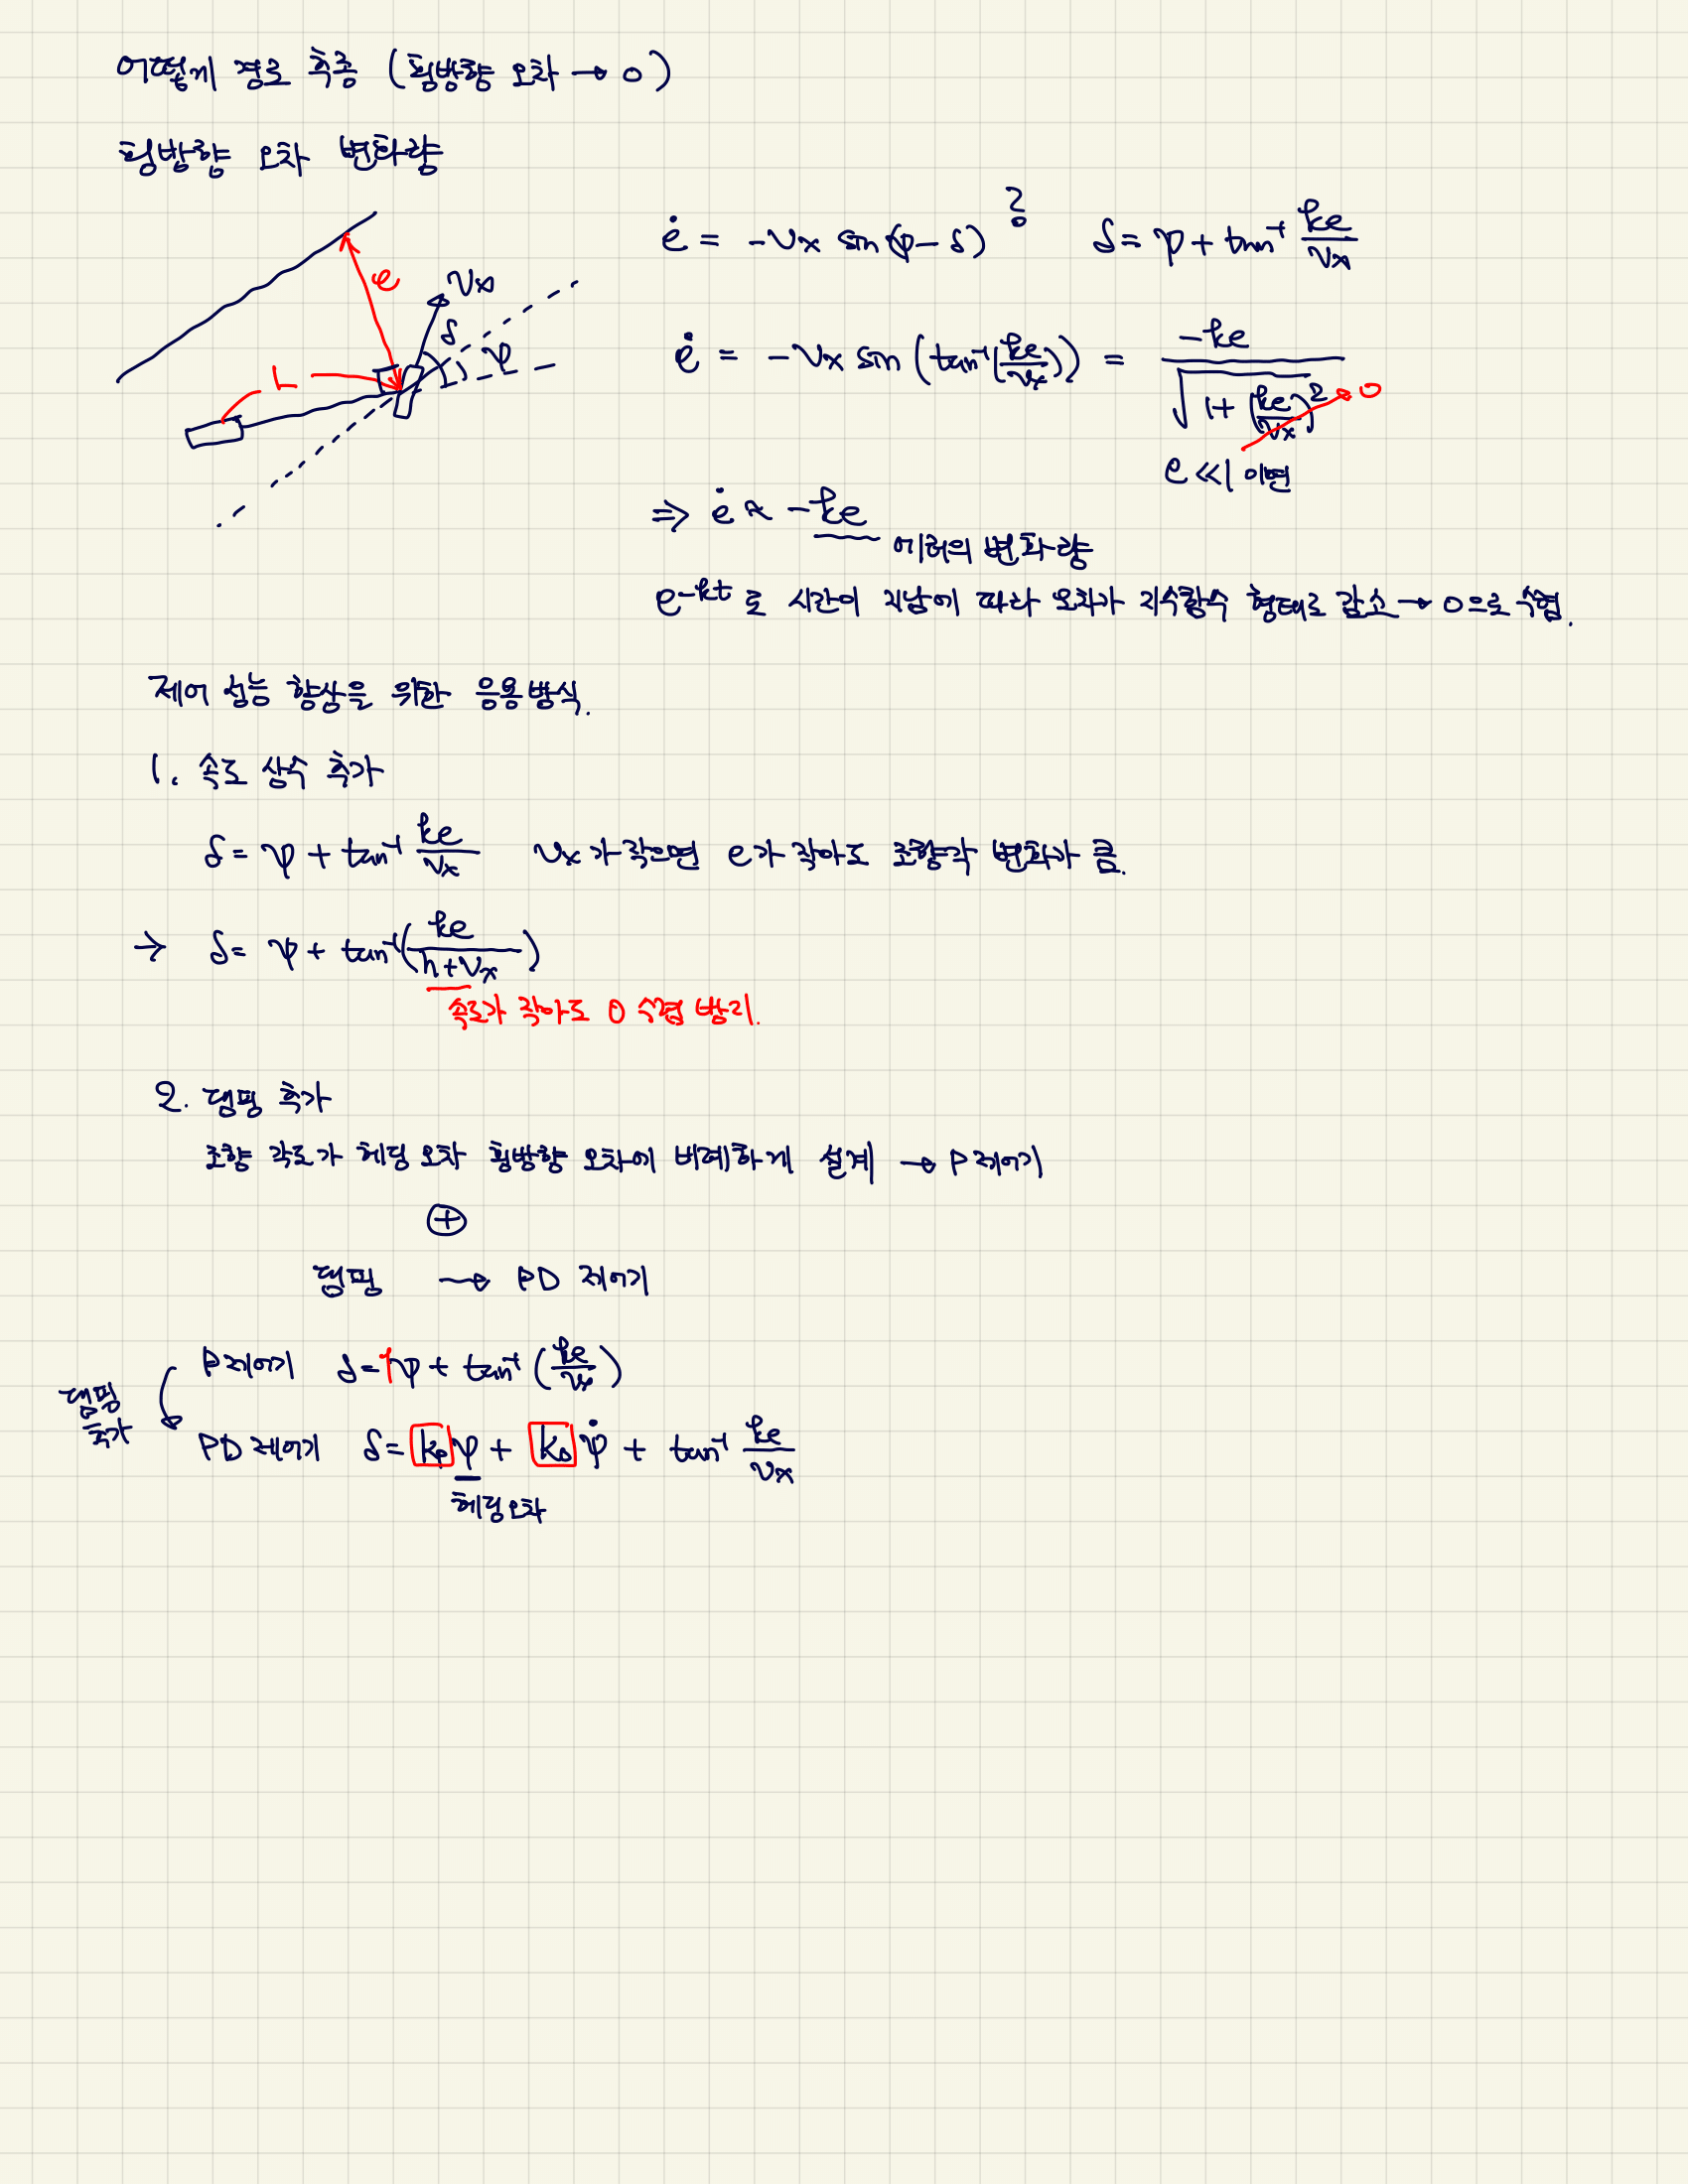 어떻게 경로 추종 (횡방향 오차 → 0)
횡방향 오차 변화량
ė = -Vx sin(ψ - δ) ? δ = ψ + tan⁻¹ ke/Vx
e Vx δ ψ L
ė = -Vx sin(tan⁻¹(ke/Vx)) = -ke / √(1+(ke/Vx)²) → 0
e ≪ 1 이면
⇒ ė ∝ -ke
에러의 변화량
e^-kt 로 시간이 지남에 따라 오차가 지수함수 형태로 감소 → 0으로 수렴.
제어 성능 향상을 위한 응용방식.
1. 속도 상수 추가
δ = ψ + tan⁻¹ ke/Vx Vx가 작으면 e가 작아도 조향각 변화가 큼.
→ δ = ψ + tan⁻¹(ke/(h+Vx))
속도가 작아도 0 수렴 방지.
2. 댐핑 추가
조향 각도가 헤딩 오차 횡방향 오차에 비례하게 설계 → P제어기
⊕
댐핑 → PD 제어기
P제어기 δ = 1ψ + tan⁻¹(ke/Vx)
댐핑 추가
PD제어기 δ = kpψ + kDψ̇ + tan⁻¹ ke/Vx
헤딩오차